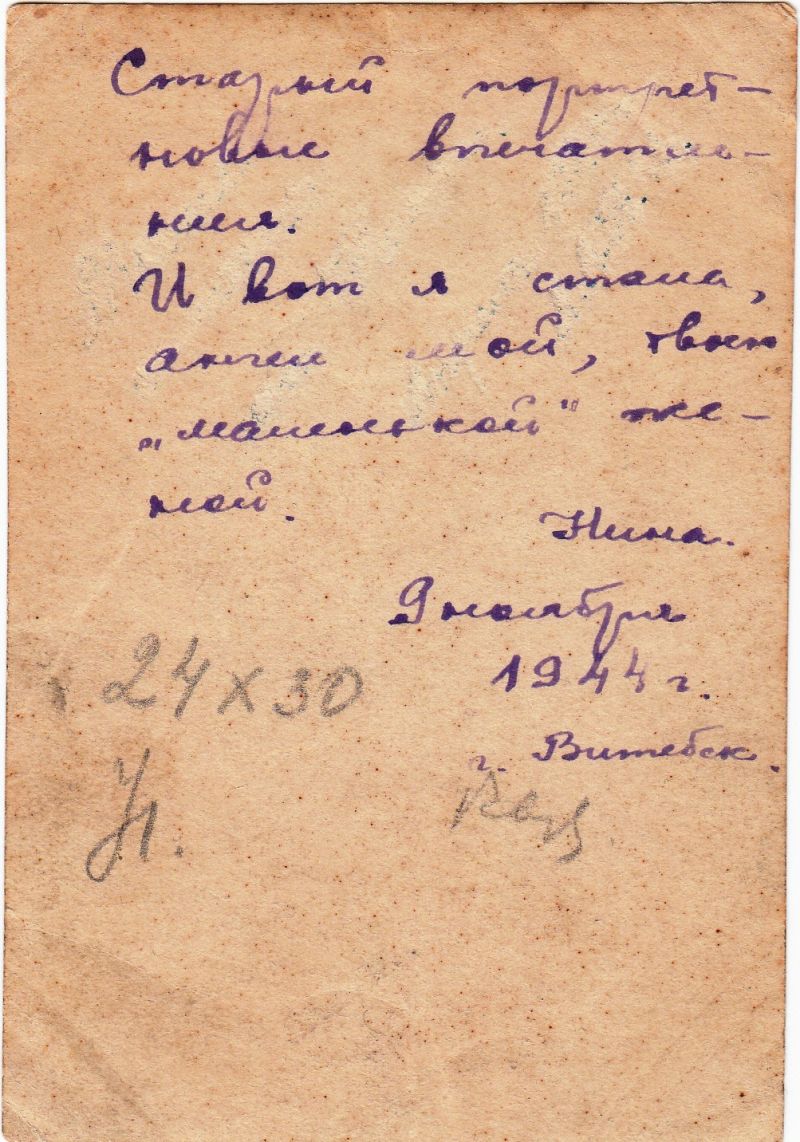 Старый портрет –
новые впечатле-
ния.
И вот я стала,
ангел мой, твоею
„маленькой" же-
ной.
Нина.
9 ноября
1944 г.
г. Витебск.
24 x 30